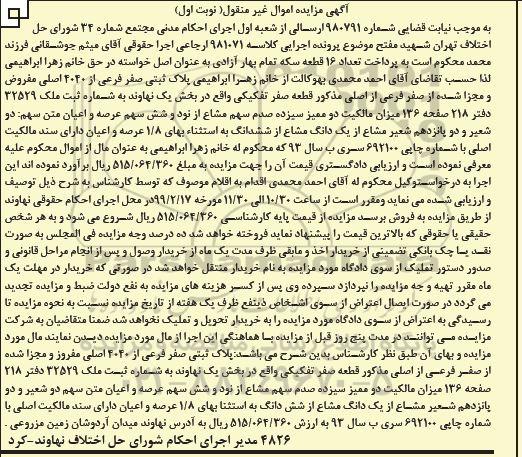 آگهی مزایده اموال غیر منقول( نوبت اول)
به موجب نیابت قضایی شماره ۹۸۰۷۹۱ ارسالی از شعبه اول اجرای احکام مدنی مجتمع شماره ۳۴ شورای حل
اختلاف تهران شهید مفتح موضوع پرونده اجرایی کلاسه ۹۸۱۰۷۱ ارجاعی اجرا حقوقی آقای میثم جوشقانی فرزند
محمد محکوم است به پرداخت تعداد ۱۶ قطعه سکه تمام بهار آزادی به عنوان اصل خواسته در حق خانم زهرا ابراهیمی
لذا حسب تقاضای آقای احمد محمدی بهوکالت از خانم زهرا ابراهیمی پلاک ثبتی صفر فرعی از ۴۰۴۰ اصلی مفروض
و مجزا شده از صفر فرعی از اصلی مذکور قطعه صفر تفکیکی واقع در بخش یک نهاوند به شماره ثبت ملک ۳۲۵۲۹
دفتر ۲۱۸ صفحه ۱۳۶ میزان مالکیت دو ممیز سیزده صدم سهم مشاع از نود و شش سهم عرصه و اعیان متن سهم: دو
شعیر و دو پانزدهم شعیر مشاع از یک دانگ مشاع از ششدانگ به استثناء بهای ۱/۸ عرصه و اعیان دارای سند مالکیت
اصلی با شماره چاپی ۶۹۲۱۰۰ سری ب سال ۹۳ که محکوم له خانم زهرا ابراهیمی به عنوان مال از اموال محکوم علیه
معرفی نموده است و ارزیابی دادگستری قیمت آن را جهت مزایده به مبلغ ۵۱۵/۰۶۴/۳۶۰ ریال برآورد نموده اند این
اجرا به درخواستوکیل محکوم له آقای احمد محمدی اقدام به اقلام موصوف که توسط کارشناس به شرح ذیل توصیف
و ارزیابی شده می نماید ومقرر است از ساعت ۱۰/۳۰الی ۱۱/۳۰ مورخه ۹۹/۲/۱۷در محل اجرای احکام حقوقی نهاوند
از طریق مزایده به فروش برسد مزایده از قیمت پایه کارشناسی ۵۱۵/۰۶۴/۳۶۰ ریال شروع می شود و به هر شخص
حقیقی یا حقوقی که بالاترین قیمت را پیشنهاد نماید فروخته خواهد شد ده درصد وجه مزایده فی المجلس به صورت
نقد یا چک بانکی تضمینی از خریدار اخذ و مابقی ظرف مدت یک ماه از خریدار وصول و پس از انجام مراحل قانونی و
صدور دستور تملیک از سوی دادگاه مورد مزایده به نام خریدار منتقل خواهد شد در صورتی که خریدار در مهلت یک
ماه مقرر تهیه و جه مزایده را نپردازد سپرده وی پس از کسر هزینه های مزایده به نفع دولت ضبط و مزایده تجدید
می گردد در صورت ایصال اعتراض از سوی اشخاص ذینفع ظرف یک هفته از تاریخ مزایده نسبت به نحوه مزایده تا
رسیدگی به اعتراض از سوی دادگاه مورد مزایده را به خریدار تحویل و تملیک نخواهد شد ضمنا متقاضیان به شرکت
مزایده می توانند در مدت پنج روز قبل از مزایده با هماهنگی این اجرا از مال مورد مزایده دیدن نمایند مال مورد
مزایده و بهای آن طبق نظر کارشناس بدین شرح می باشد:پلاک ثبتی صفر فرعی از ۴۰۴۰ اصلی مفروز و مجزا شده
از صفر فرعی از اصلی مذکور قطعه صفر تفکیکی واقع در بخش یک نهاوند به شماره ثبت ملک ۳۲۵۲۹ دفتر ۲۱۸
صفحه ۱۳۶ میزان مالکیت دو ممیز سیزده صدم سهم مشاع از نود و شش سهم عرصه و اعیان متن سهم دو شعیر و دو
پانزدهم شعیر مشاع از یک دانگ مشاع از شش دانگ به استثنا بهای ۱/۸ عرصه و اعیان دارای سند مالکیت اصلی با
شماره چاپی ۶۹۲۱۰۰ سری ب سال ۹۳ به ارزش ۵۱۵/۰۶۴/۳۶۰ ریال به آدرس نهاوند میدان آردوشان زمین مزروعی .
۴۸۲۶ مدیر اجرای احکام شورای حل اختلاف نهاوند-کرد